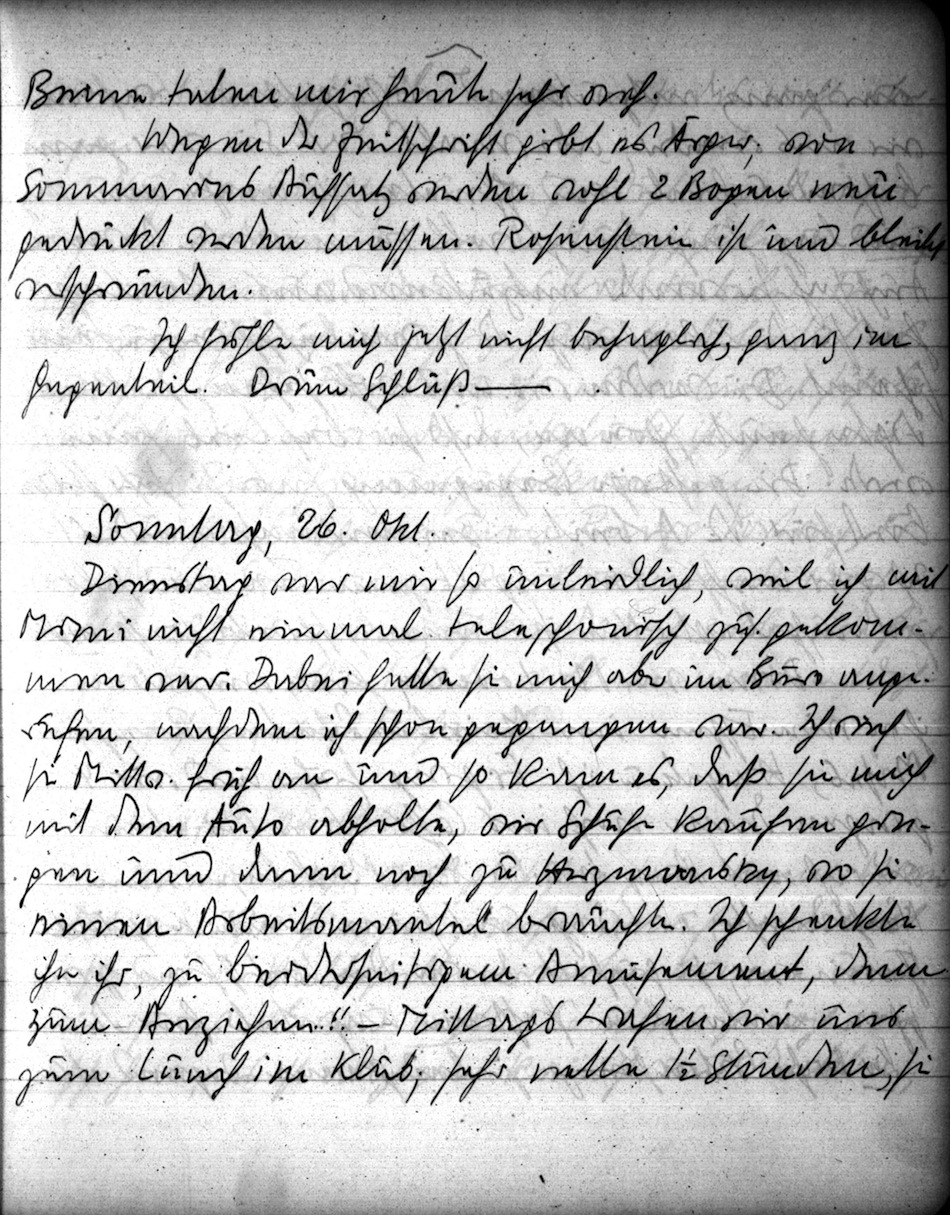 Beine taten mir heute sehr weh.
Wegen der Zeitschrift gibt es Ärger, von
Sommarus Aufsatz werden wohl 2 Bogen neu
gedruckt werden müssen. Rosenstein ist und bleibt
verschwunden.
Ich fühle mich jetzt nicht behaglich, ganz im
Gegenteil. Drum Schluß —
Sonntag, 26. Okt.
Dienstag war mir so unleidlich, weil ich mit
Mimi nicht einmal telephonisch zus. gekom-
men war. Dabei hatte sie mich aber im Büro ange-
rufen, nachdem ich schon gegangen war. Ich rief
sie Mittw. früh an und so kam es, daß sie mich
mit dem Auto abholte, wir Schuhe kaufen gin-
gen und dann noch zu Herzmansky, wo sie
einen Arbeitsmantel brauchte. Ich schenkte
ihn ihr, zu beiderseitigem Amusement, denn
zum Anziehen!! – Mittags trafen wir uns
zum Lunch im Klub; sehr nette 1½ Stunden, sie